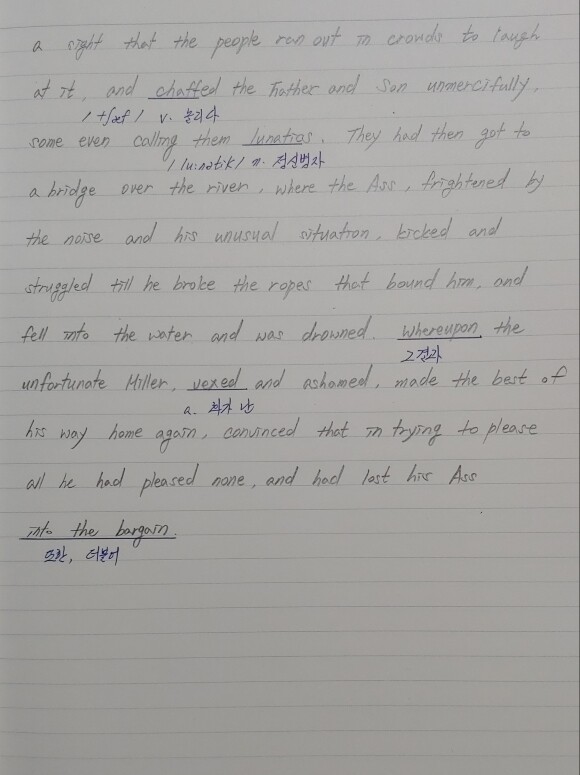 a sight that the people ran out in crowds to laugh
at it, and chaffed the Father and Son unmercifully,
/tʃæf/ v. 놀리다
some even calling them lunatics. They had then got to
/lu:nətik/ n. 정신병자
a bridge over the river, where the Ass, frightened by
the noise and his unusual situation, kicked and
struggled till he broke the ropes that bound him, and
fell into the water and was drowned. Whereupon, the
그결과
unfortunate Miller, vexed and ashamed, made the best of
a. 화가 난
his way home again, convinced that in trying to please
all he had pleased none, and had lost his Ass
into the bargain.
또한, 더불어